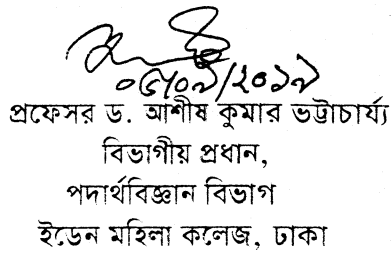 ০৫/০৯/২০১৯
প্রফেসর ড. আশীষ কুমার ভট্টাচার্য্য
বিভাগীয় প্রধান,
পদার্থবিজ্ঞান বিভাগ
ইডেন মহিলা কলেজ, ঢাকা